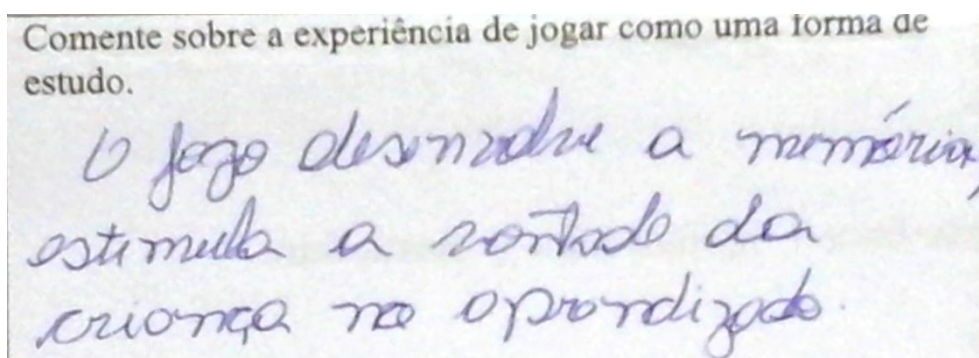 Comente sobre a experiência de jogar como uma forma de
estudo.
O jogo desenvolve a memória,
estimula a vontade da
criança no aprendizado.